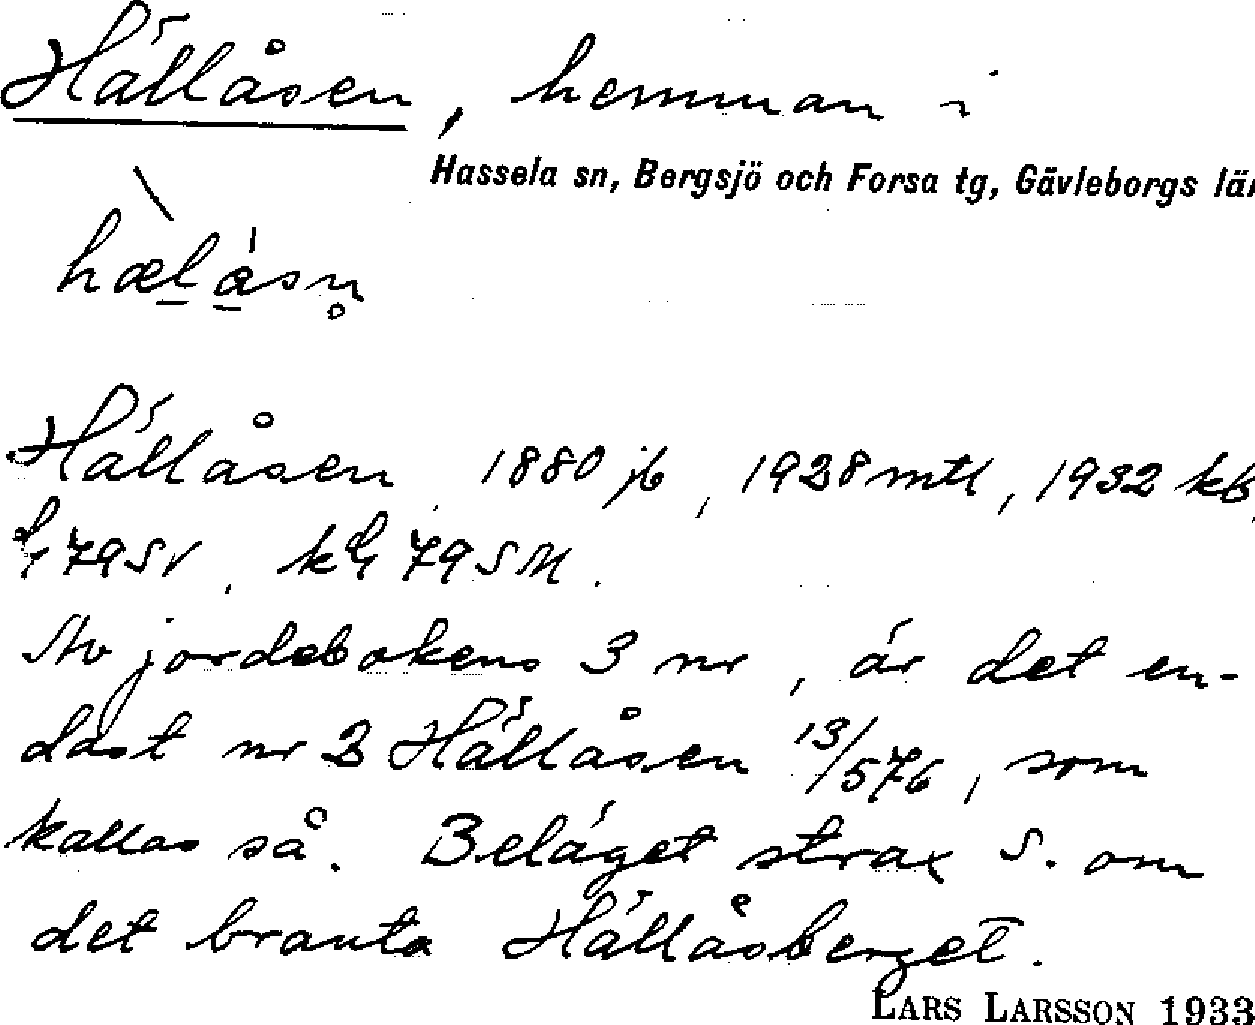 Hällåsen, hemman i
Hassela sn, Bergsjö och Forsa tg, Gävleborgs län
hælåsn̥
Hällåsen 1880 jb, 1928 mtl, 1932 kb,
79 SV, k 79 SM.
Av jordebokens 3 nr, är det en-
dast nr 2 Hällåsen 13/576, som
kallas så. Beläget strax S. om
det branta Hällåsberget.
LARS LARSSON 1933